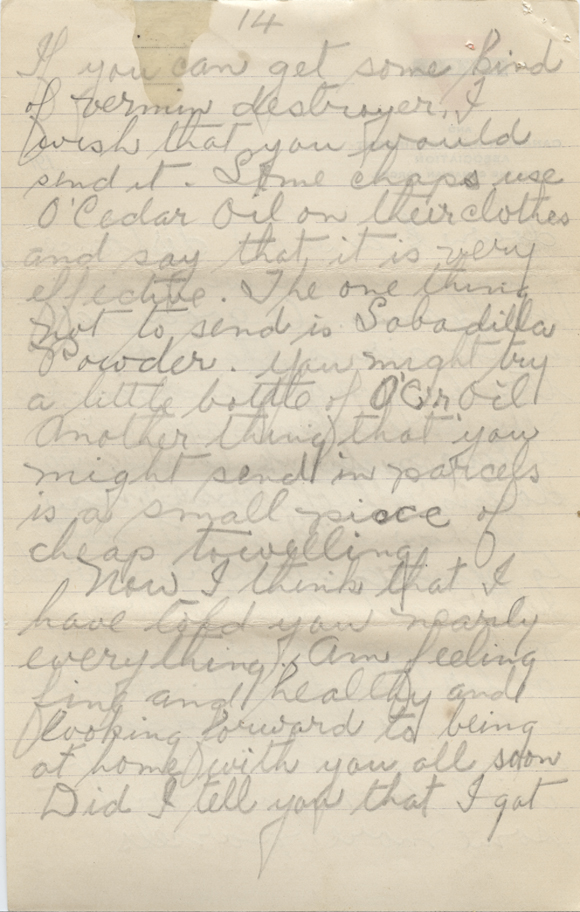 14
If you can get some kind
of vermin destroyer, I
wish that you would
send it. Some chaps use
O'Cedar Oil on their clothes
and say that it is very
effective. The one thing
not to send is Sabadilla
Powder. You might try
a little bottle of O'Cr Oil
Another thing that you
might send in parcels
is a small piece of
cheap towelling
Now I think that I
have told you nearly
everything. Am feeling
fine and healthy and
looking forward to being
at home with you all soon
Did I tell you that I got